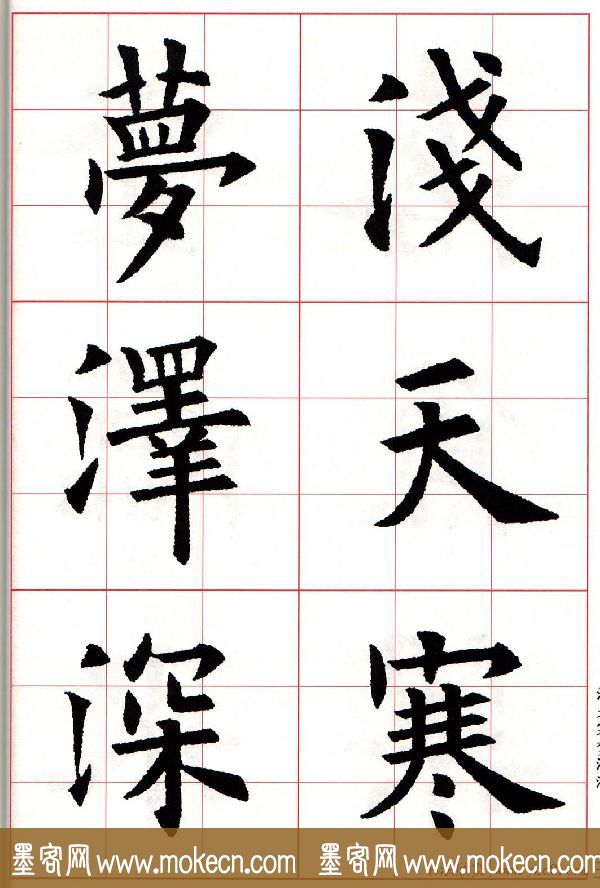 淺天寒
夢澤深
墨客网 www.mokecn.com 墨客网 www.mokecn.com